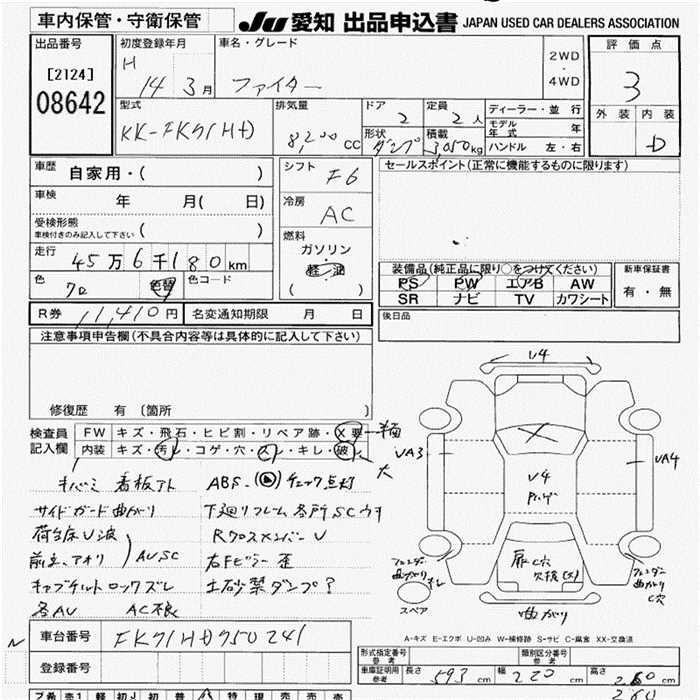 車内保管・守衛保管
JU 愛知 出品申込書 JAPAN USED CAR DEALERS ASSOCIATION
出品番号
[2124]
08642
初度登録年月
H 14 3月
車名・グレード
ファイター
2WD
・
4WD
評価点
3
外装 内装
D
型式
KK-FK71HD
排気量
8,200 cc
ドア
2
定員
2人
形状
ダンプ
積載
3,050kg
ディーラー・並行
モデル年式 年
ハンドル 左・右
車歴 自家用・( )
車検 年 月( 日)
受検形態
車検付きのみ記入して下さい ( )
走行 45万6千180km
色 クロ 色替 色コード
シフト
F6
冷房
AC
燃料
ガソリン
・
軽油
( )
セールスポイント(正常に機能するものに限ります)
装備品(純正品に限り○をつけてください)
PS PW エアB AW
SR ナビ TV カワシート
新車保証書
有・無
R券 11,410円 名変通知期限 月 日
後日品
注意事項申告欄(不具合内容等は具体的に記入して下さい)
修復歴 有 (箇所 )
検査員記入欄
FW キズ・飛石・ヒビ割・リペア跡・X要
内装 キズ・汚レ・コゲ・穴・スレ・キレ・破レ
大
看板アト ABS チェック点灯
サイドガード曲がり 下廻りフレーム各所SCサヲ
荷台床U波 RクロスメンバーU
前立、アオリ AUSC 右Fピラー歪
キャブチルトロックズレ 土砂禁ダンプ?
各AU AC不良
U4
UA3
UA4
U4
扉C穴
欠損(大)
フェンダー
曲がり
キレ
フェンダー
曲がり
C穴
スペア
曲がり
A-キズ E-エクボ U-凹み W-補修跡 S-サビ C-腐食 XX-交換済
車台番号 FK71HD750241
登録番号
形式指定番号 参考
類別区分番号 参考
車庫証明用 参考 長さ 593cm 幅 220cm 高さ 260cm
260